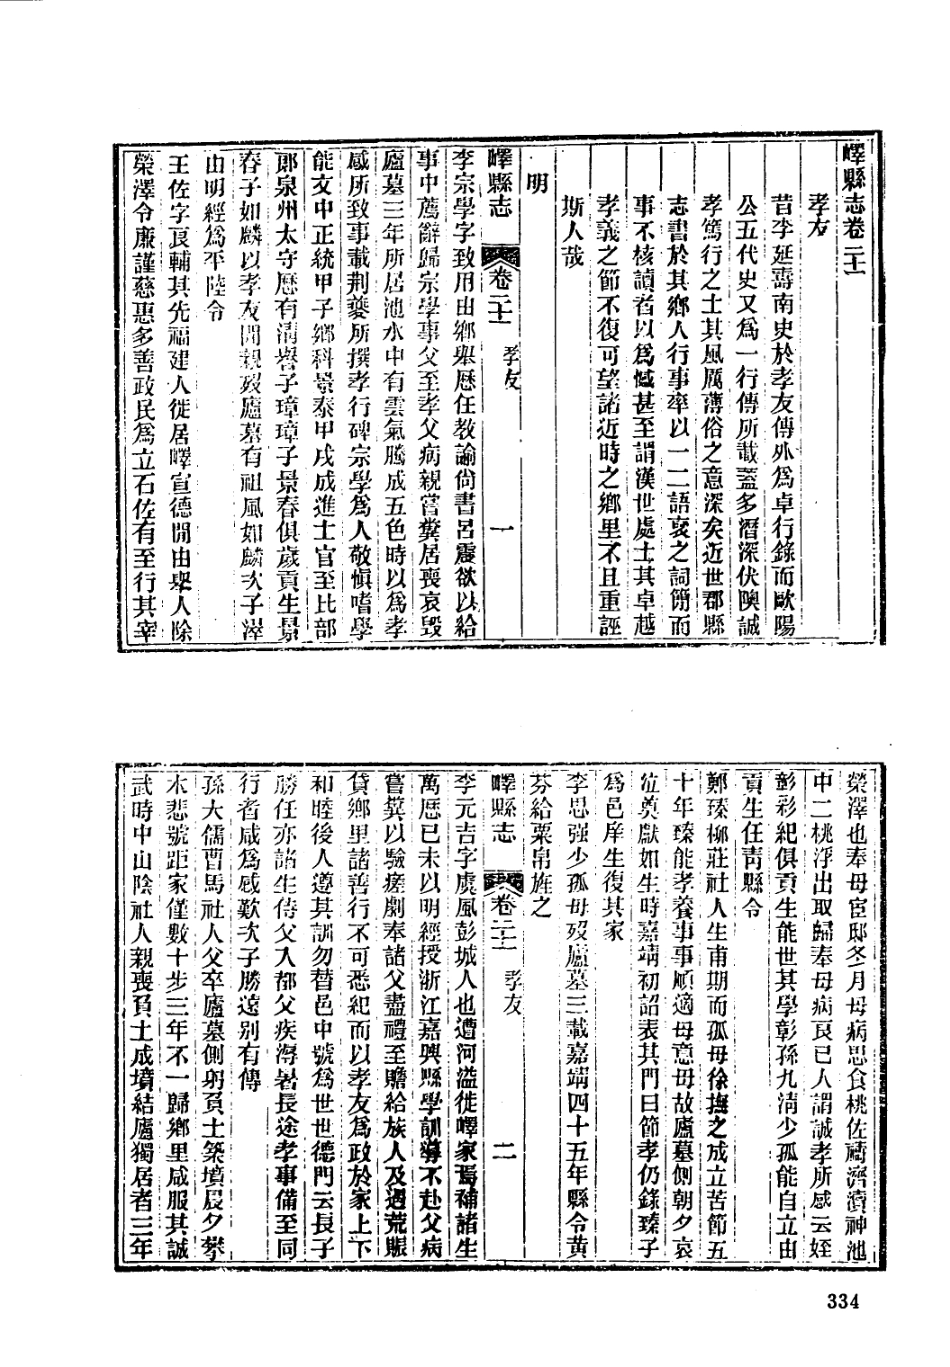 嶧縣志卷二十一
孝友
昔李延壽南史於孝友傳外爲卓行錄而歐陽
公五代史又爲一行傳所載蓋多潛深伏隩誠
孝篤行之士其風厲薄俗之意深矣近世郡縣
志書於其鄉人行事率以一二語裒之詞簡而
事不核讀者以爲憾甚至謂漢世處士其卓越
孝義之節不復可望諸近時之鄉里不且重誣
斯人哉
明
嶧縣志 卷二十一 孝友 一
李宗學字致用由鄉舉歷任教諭尚書呂震欲以給
事中薦辭歸宗學事父至孝父病親嘗糞居喪哀毀
廬墓三年所居池水中有雲氣騰成五色時以爲孝
感所致事載荆夔所撰孝行碑宗學爲人敬愼嗜學
能文中正統甲子鄉科景泰甲戌成進士官至比部
郎泉州太守歷有清譽子璋璋子景春俱歲貢生景
春子如麟以孝友聞親歿廬墓有祖風如麟次子澤
由明經爲平陸令
王佐字良輔其先福建人徙居嶧宣德間由舉人除
榮澤令廉謹慈惠多善政民爲立石佐有至行其宰
榮澤也奉母宦邸冬月母病思食桃佐禱濟瀆神池
中二桃浮出取歸奉母病良已人謂誠孝所感云姪
彭彩紀俱貢生能世其學彰孫九淸少孤能自立由
貢生任靑縣令
鄭瑧柳莊社人生甫期而孤母徐撫之成立苦節五
十年瑧能孝養事事順適母意母故廬墓側朝夕哀
泣奠獻如生時嘉靖初詔表其門曰節孝仍錄瑧子
爲邑庠生復其家
李思强少孤母歿廬墓三載嘉靖四十五年縣令黄
芬給粟帛旌之
嶧縣志 卷二十一 孝友 二
李元吉字虞風彭城人也遭河溢徙嶧家焉補諸生
萬歷已未以明經授浙江嘉興縣學訓導不赴父病
嘗糞以驗瘥劇奉諸父盡禮至贍給族人及遇荒賑
貸鄉里諸善行不可悉紀而以孝友爲政於家上下
和睦後人遵其訓勿替邑中號爲世世德門云長子
勝任亦諸生侍父入都父疾溽暑長途孝事備至同
行者咸爲感歎次子勝遠别有傳
孫大儒曹馬社人父卒廬墓側躬負土築墳晨夕攀
木悲號距家僅數十步三年不一歸鄉里咸服其誠
武時中山陰社人親喪負土成墳結廬獨居者三年
334